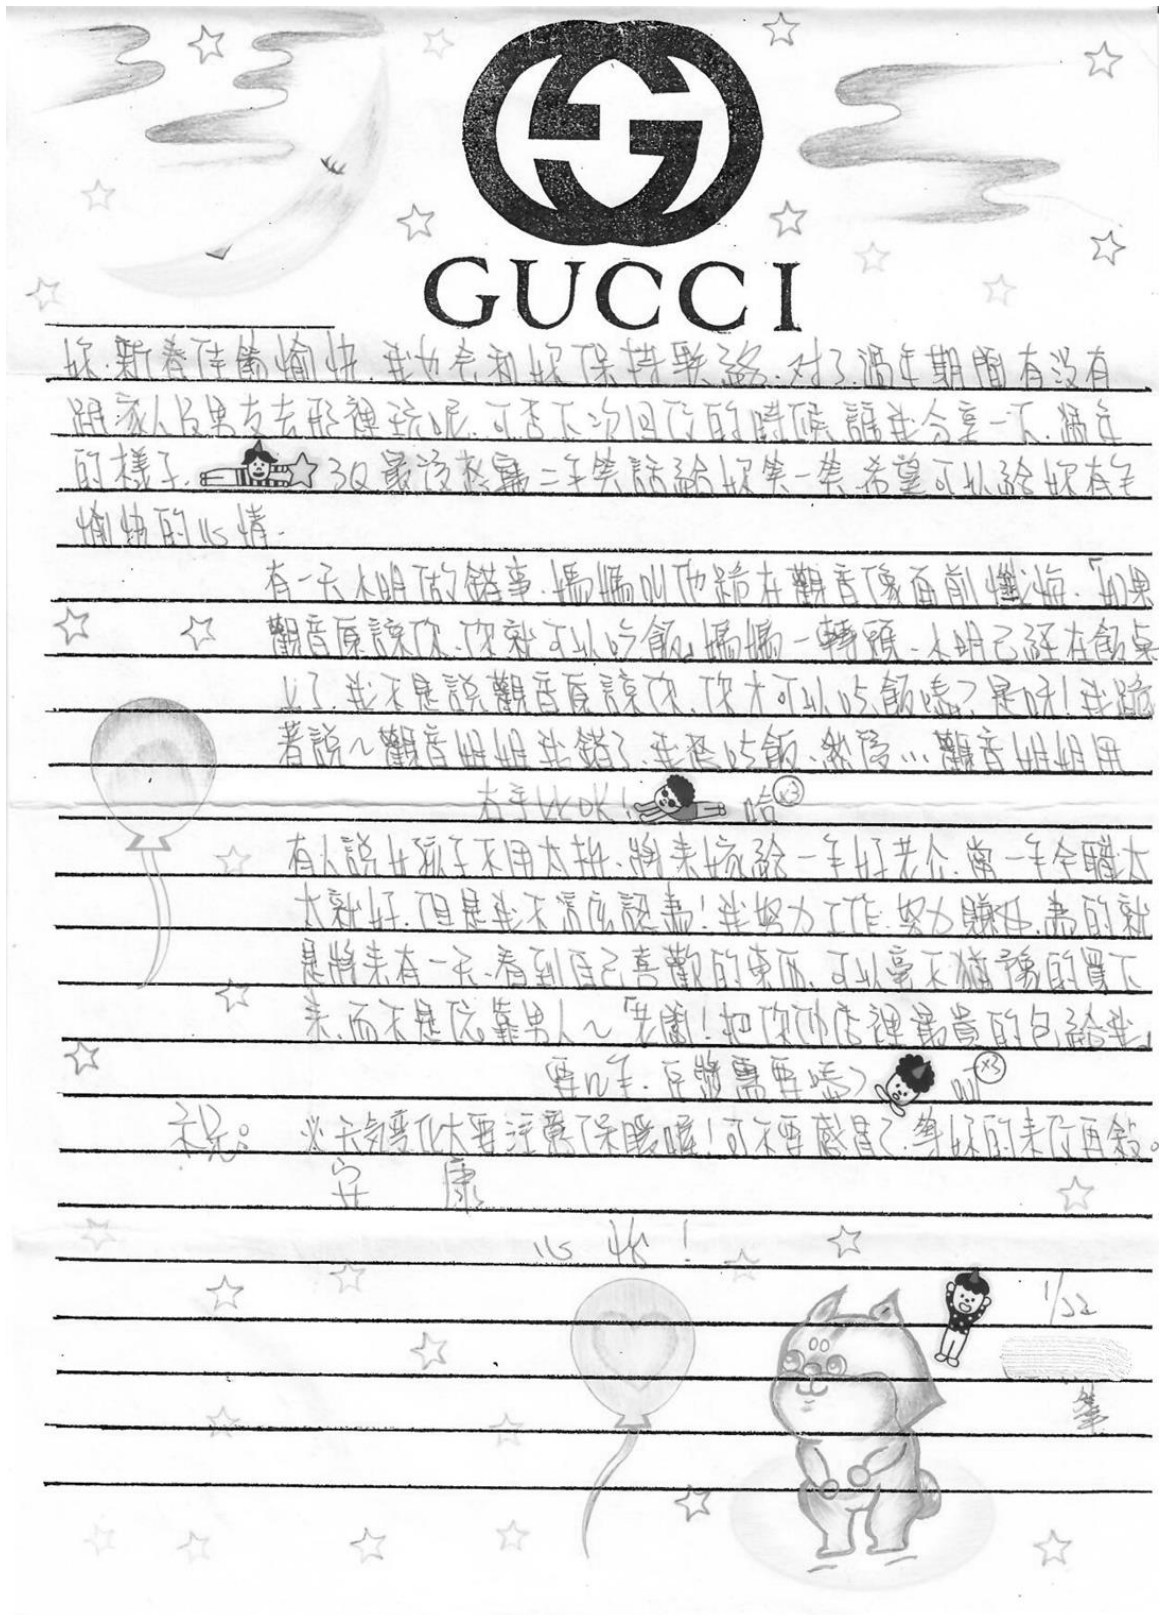 GUCCI
妳.新春佳節愉快.我也會和妳保持聯絡.对了.過年期間有沒有
跟家人及男友去那裡玩呢.可否下次回信的時候讓我分享一下.過年
的樣子. 3Q最後在寫二个笑話給妳笑一笑.希望可以給妳有个
愉快的心情.
有一天小明做了錯事.媽媽叫他跪在觀音像面前懺悔.「如果
觀音原諒你、你就可以吃飯」媽媽一轉頭.小明已經在飯桌
上了.我不是說觀音原諒你.你才可以吃飯嗎?是呀!我跪
著說~觀音姐姐我錯了.我要吃飯.然後...觀音姐姐用
右手比OK! 哈x3
有人說女孩子不用太拼.將來嫁給一个好老公.當一个全職太
太就好.但是我不這麼認為!我努力工作.努力賺錢.為的就
是將來有一天、看到自己喜歡的東西.可以毫不猶豫的買下
來.而不是依靠男人~「老闆!把你們店裡最貴的包給我」
要几个.豆漿需要嗎? x3
祝: 天気變化大要注意保暖喔!可不要感冒了.等妳的來信再敘。
安 康
心 怡 !
1/22
筆